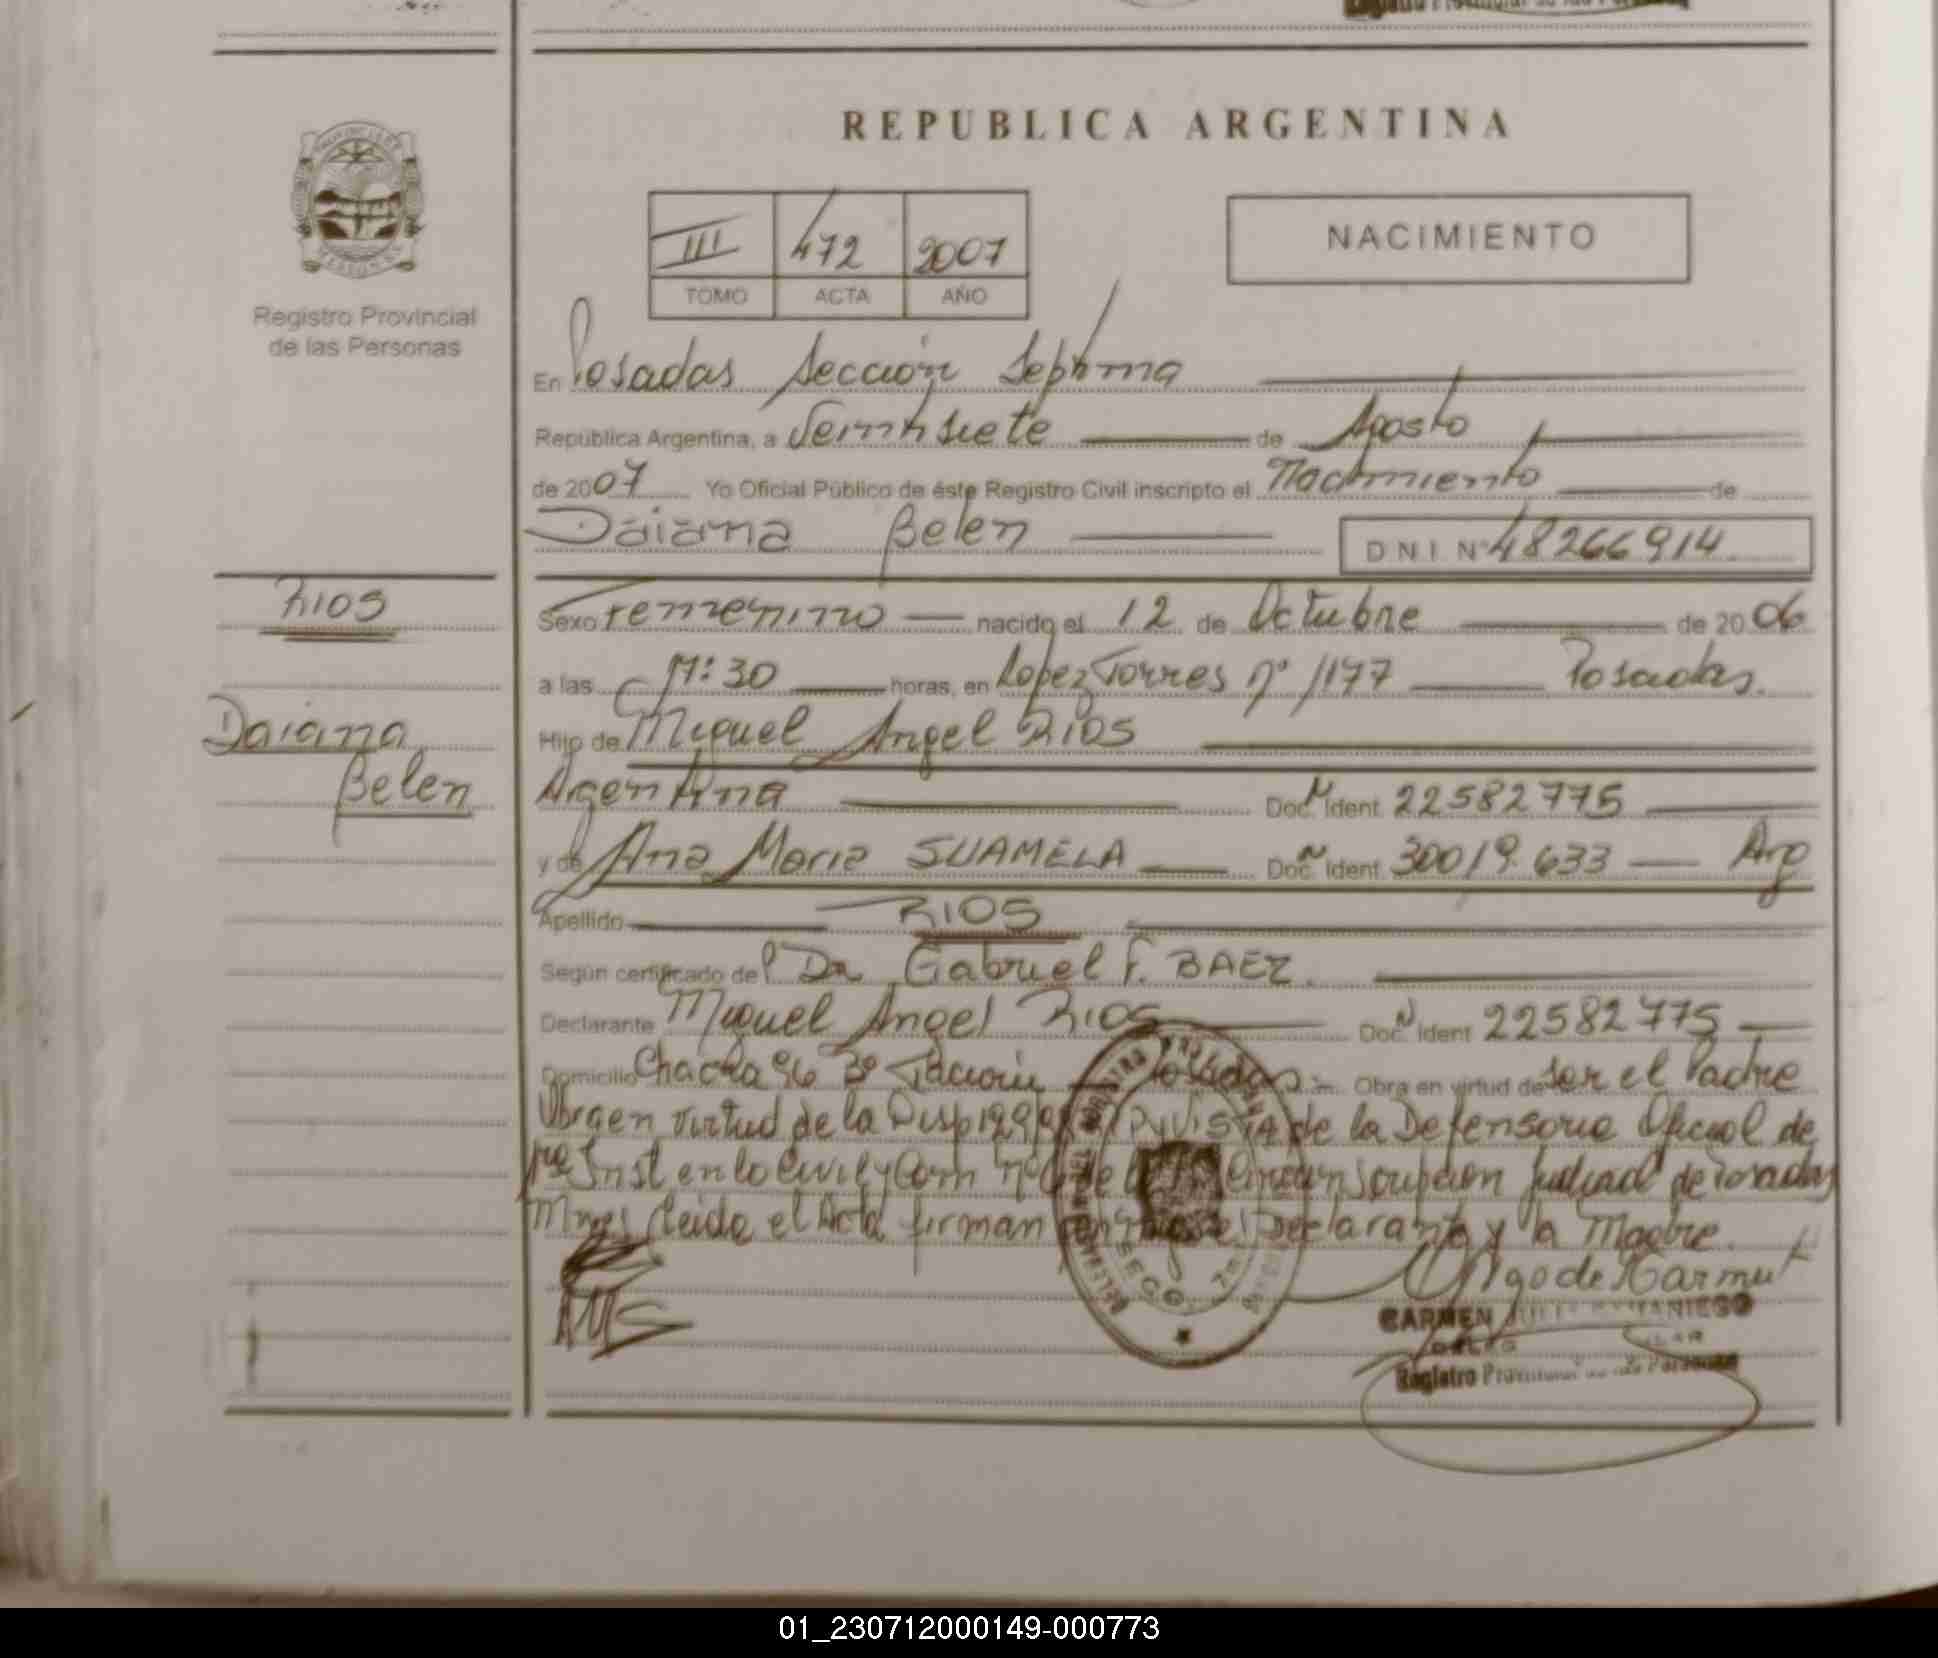 REPUBLICA ARGENTINA
III 472 2007
TOMO ACTA AÑO
NACIMIENTO
Registro Provincial
de las Personas
En Posadas Sección Septima
República Argentina, a Veintisiete de Agosto
de 2007 Yo Oficial Público de éste Registro Civil inscripto el Nacimiento de
Daiana Belen DNI Nº 48266914
RIOS
Sexo Femenino nacido el 12 de Octubre de 2006
a las 17:30 horas, en Lopez Torres nº 1177 Posadas.
Daiana
Belen
Hijo de Miguel Angel RIOS
Argentina Doc. Ident. 22582775
y de Ana Maria SUAMELA Doc. Ident. 30019.633 Arg
Apellido RIOS
Según certificado del Dr Gabriel F. BAEZ.
Declarante Miguel Angel RIOS Doc. Ident. 22582775
Domicilio Chacra 96 Bº Posadas Obra en virtud de ser el Padre
en virtud de la Disp de la Defensoria Oficial de
Inst en lo Civil y Com de Circunscripcion Judicial de Posadas
Mnes Leida el Acta firman el Declarante y la Madre.
AMS
CARMEN
Registro Provincial de las Personas
01_230712000149-000773